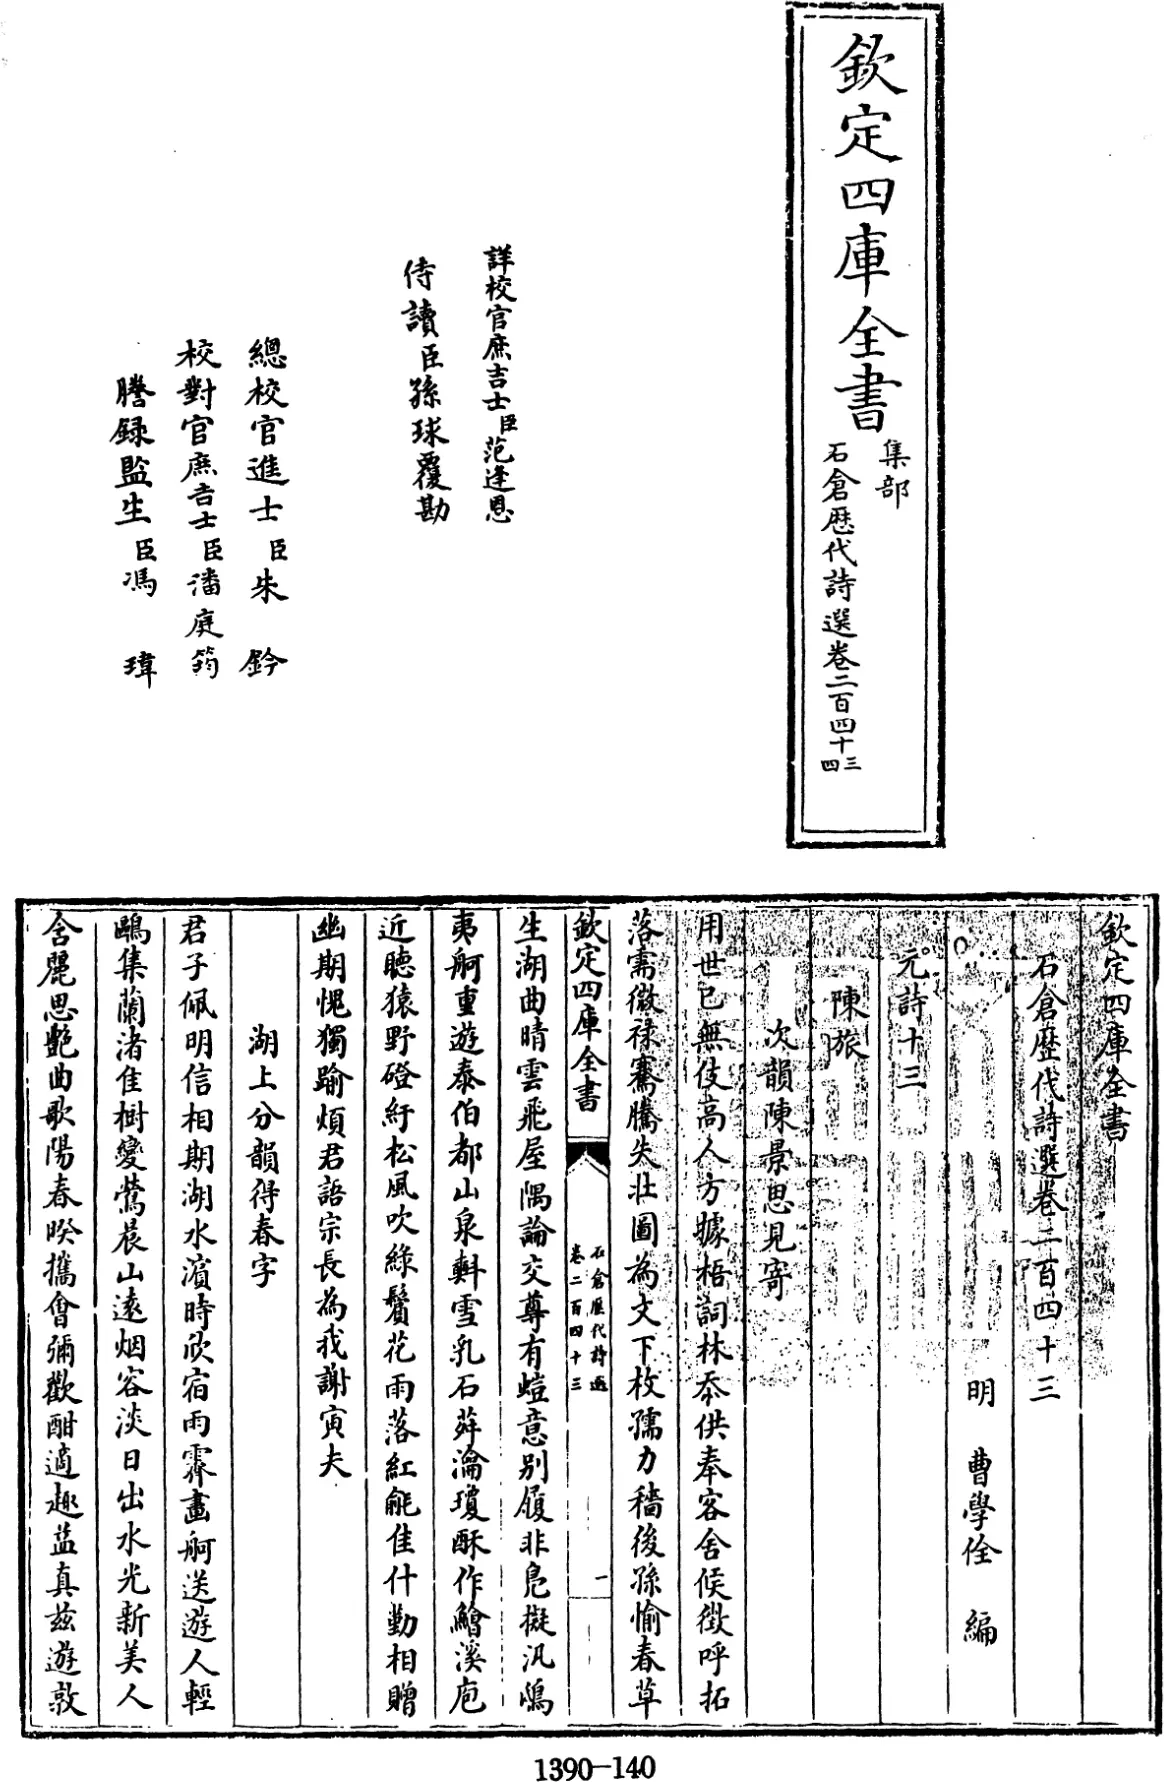 欽定四庫全書
集部
石倉歷代詩選卷二百四十三
四
詳校官庶吉士臣范逢恩
侍讀臣孫球覆勘
總校官進士臣朱鈐
校對官庶吉士臣潘庭筠
謄錄監生臣馮瑋
欽定四庫全書
石倉歷代詩選卷二百四十三
明 曹學佺 編
元詩十三
陳旅
次韻陳景思見寄
用世已無伎高人方據梧詞林忝供奉客舍候徴呼拓
落需微祿騫騰失壯圖為文下枚孺力穡後孫愉春草
欽定四庫全書
石倉歷代詩選
卷二百四十三
一
生湖曲晴雲飛屋隅論交尊有螘意別履非鳧擬汎鴟
夷舸重遊泰伯都山泉㪺雪乳石荈瀹瓊酥作鱠溪庖
近聽猿野磴紆松風吹綠鬢花雨落紅毹佳什勤相贈
幽期愧獨踰煩君語宗長為我謝寅夫
湖上分韻得春字
君子佩明信相期湖水濵時欣宿雨霽畫舸送遊人輕
鷗集蘭渚佳樹變鶯晨山遠烟容淡日出水光新美人
含麗思艷曲歌陽春暌攜會彌歡酣適趣益真兹遊敦
1390-140